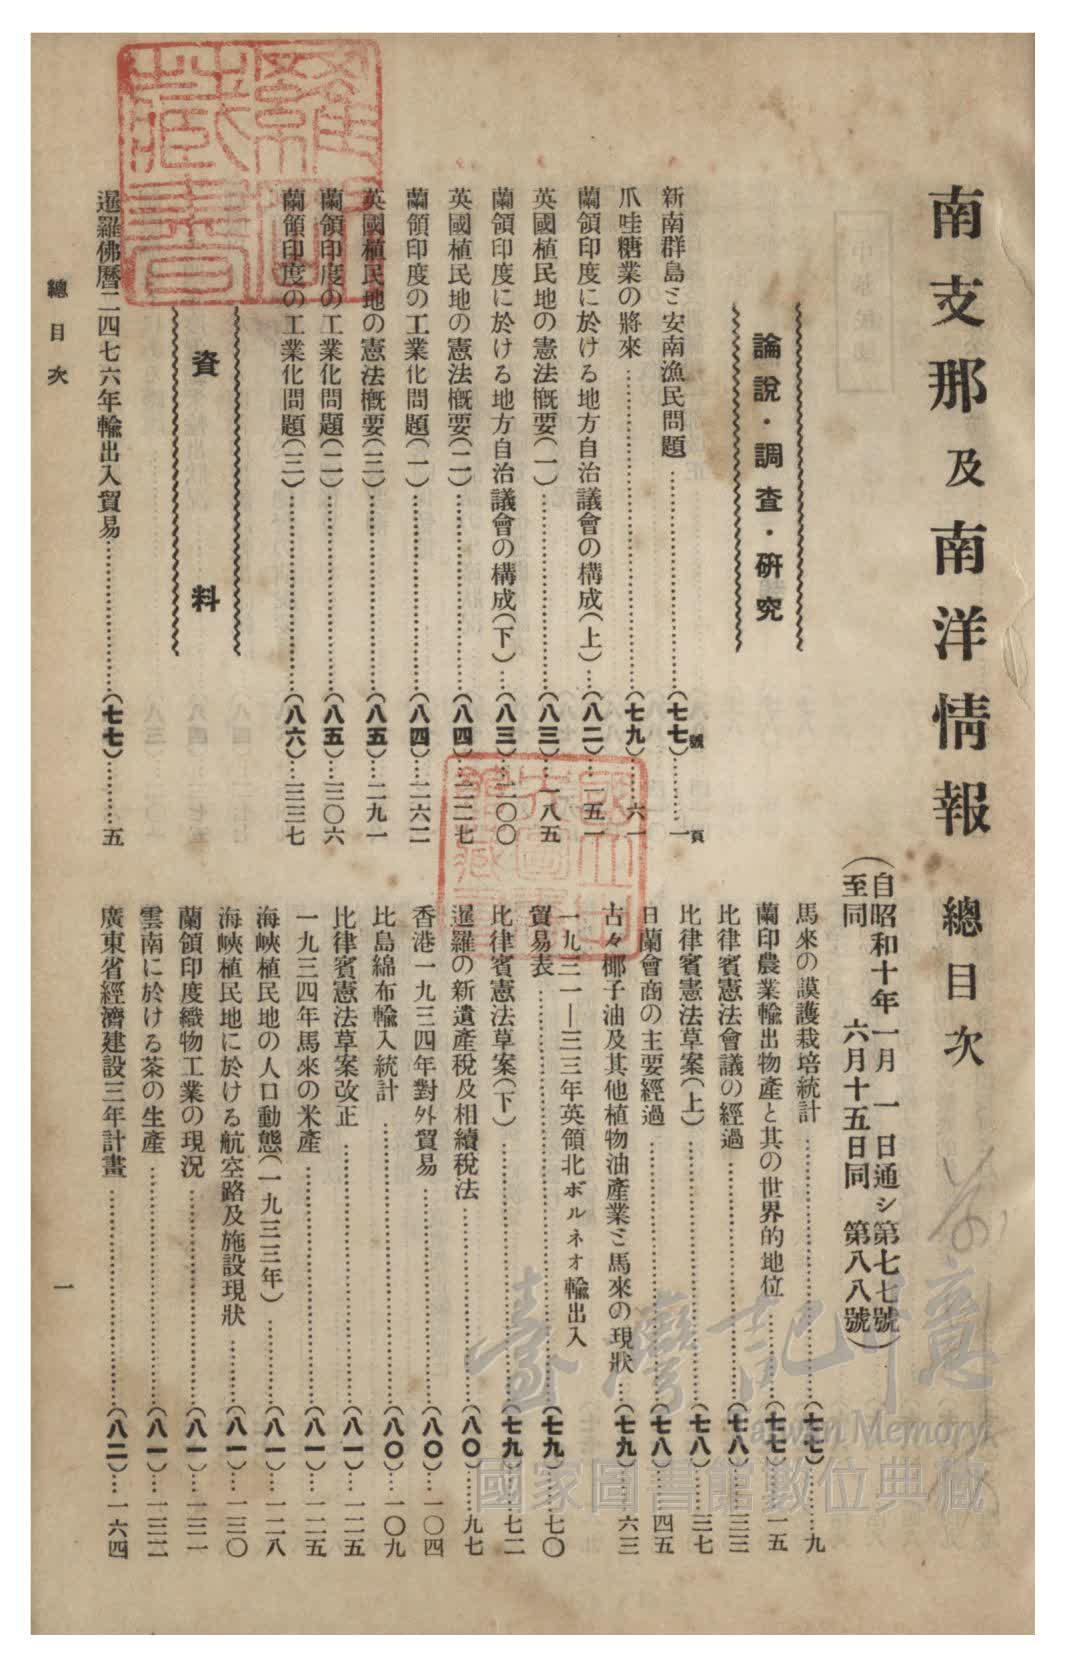 南支那及南洋情報 總目次
(自昭和十年一月 一日通シ第七七號)
(至同 六月十五日同 第八八號)
論說・調查・研究
新南群島ミ安南漁民問題……(七七號)……一頁
爪哇糖業の將來……(七九)…六一
蘭領印度に於ける地方自治議會の構成(上)…(八二)…一五一
英國植民地の憲法概要(一)……(八三)…一八五
蘭領印度に於ける地方自治議會の構成(下)…(八三)…二〇〇
英國植民地の憲法概要(二)……(八四)…二二七
蘭領印度の工業化問題(一)……(八四)…二六二
英國植民地の憲法概要(三)……(八五)…二九一
蘭領印度の工業化問題(二)……(八五)…三〇六
蘭領印度の工業化問題(三)……(八六)…三三七
資料
暹羅佛曆二四七六年輸出入貿易……(七七)……五
馬來の護謨栽培統計……(七七)……九
蘭印農業輸出物產と其の世界的地位……(七七)…一五
比律賓憲法會議の經過……(七八)…三三
比律賓憲法草案(上)……(七八)…三七
日蘭會商の主要經過……(七八)…四五
古々椰子油及其他植物油產業ミ馬來の現狀…(七九)…六三
一九三一―三三年英領北ボルネオ輸出入
貿易表……(七九)…七〇
比律賓憲法草案(下)……(七九)…七二
暹羅の新遺產稅及相續稅法……(八〇)…九七
香港一九三四年對外貿易……(八〇)…一〇四
比島綿布輸入統計……(八〇)…一〇九
比律賓憲法草案改正……(八一)…一二五
一九三四年馬來の米產……(八一)…一二五
海峽植民地の人口動態(一九三三年)……(八一)…一二八
海峽植民地に於ける航空路及施設現狀……(八一)…一三〇
蘭領印度織物工業の現況……(八一)…一三一
雲南に於ける茶の生產……(八一)…一三二
廣東省經濟建設三年計畫……(八二)…一六四
總目次
一
臺灣記憶
Taiwan Memory
國家圖書館數位典藏